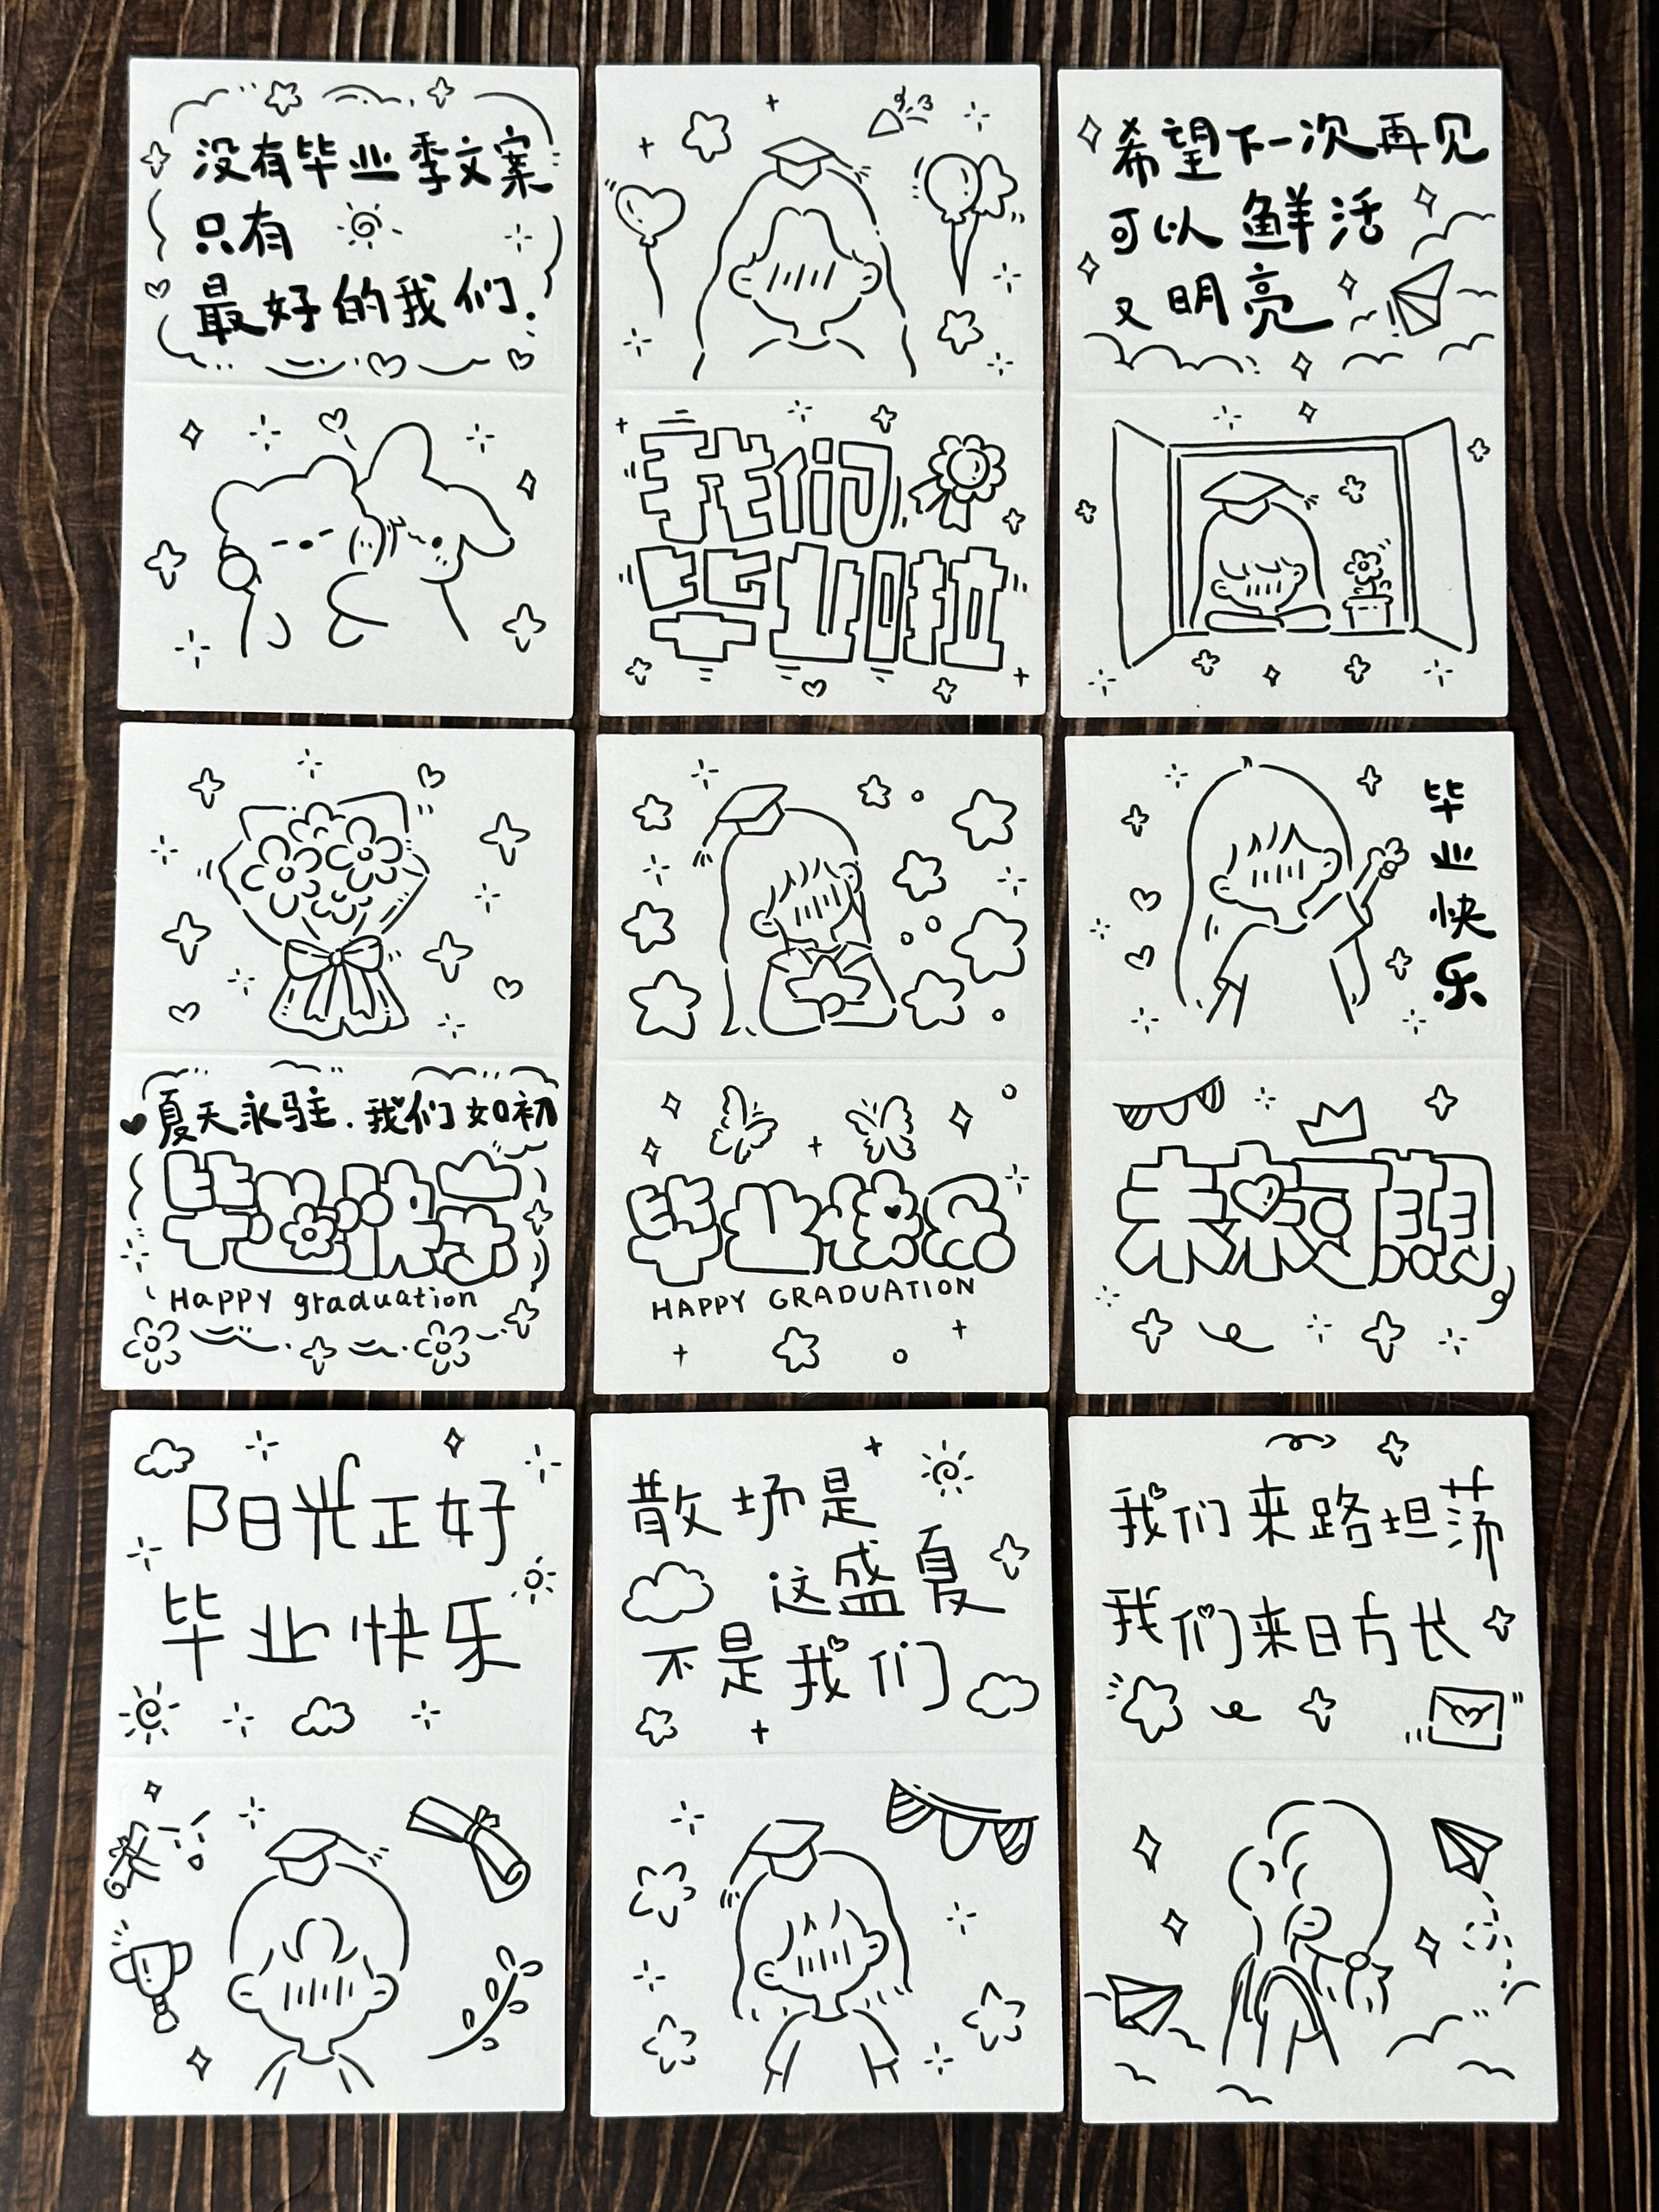 没有毕业季文案
只有
最好的我们.
我们
毕业啦
希望下一次再见
可以鲜活
又明亮
夏天永驻.我们如初
毕业快乐
Happy graduation
毕业快乐
HAPPY GRADUATION
毕业快乐
未来可期
阳光正好
毕业快乐
散场是
这盛夏
不是我们
我们来路坦荡
我们来日方长